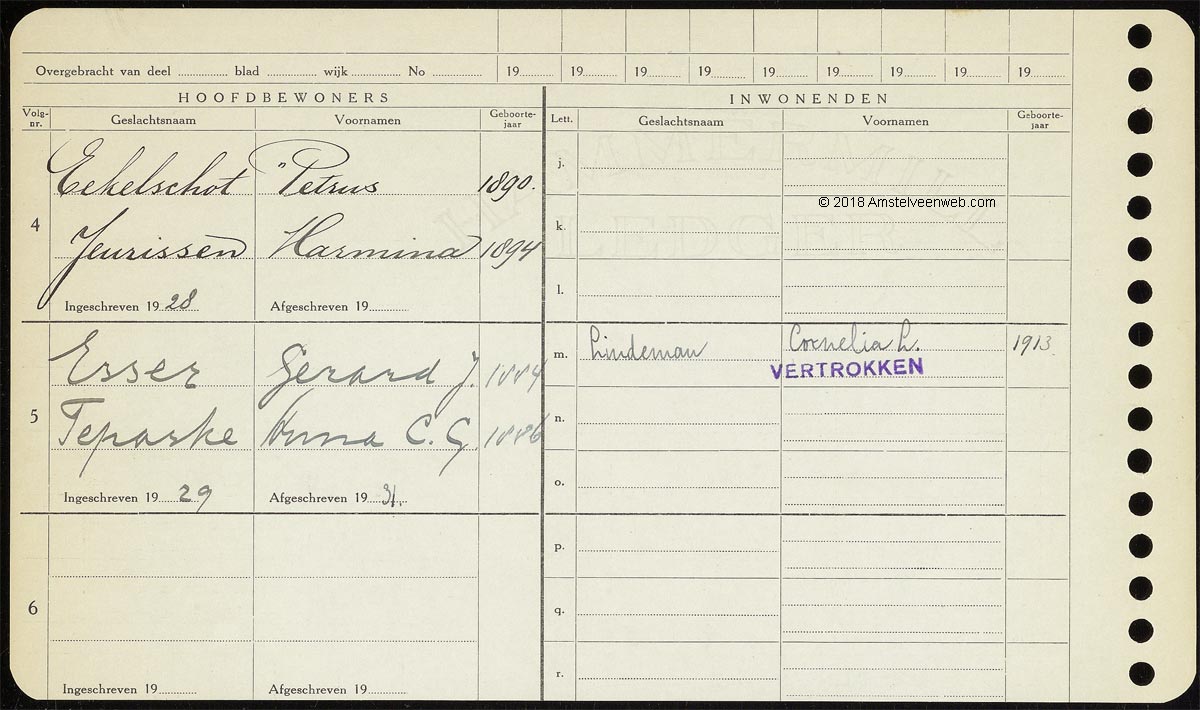 Overgebracht van deel ............ blad ............ wijk ............ No ............ 19...... 19...... 19...... 19...... 19...... 19...... 19...... 19...... 19......
HOOFDBEWONERS INWONENDEN
Volg-nr. Geslachtsnaam Voornamen Geboorte-jaar Lett. Geslachtsnaam Voornamen Geboorte-jaar
Eekelschot Petrus 1890. j.
© 2018 Amstelveenweb.com
4 k.
Jeurissen Harmina 1894
Ingeschreven 1928 Afgeschreven 19...... l.
Esser Gerard J. 1884 m. Lindeman Cornelia h. 1913.
VERTROKKEN
5 Teparske Anna C. G. 1886 n.
Ingeschreven 1929 Afgeschreven 1931. o.
p.
6 q.
Ingeschreven 19...... Afgeschreven 19...... r.